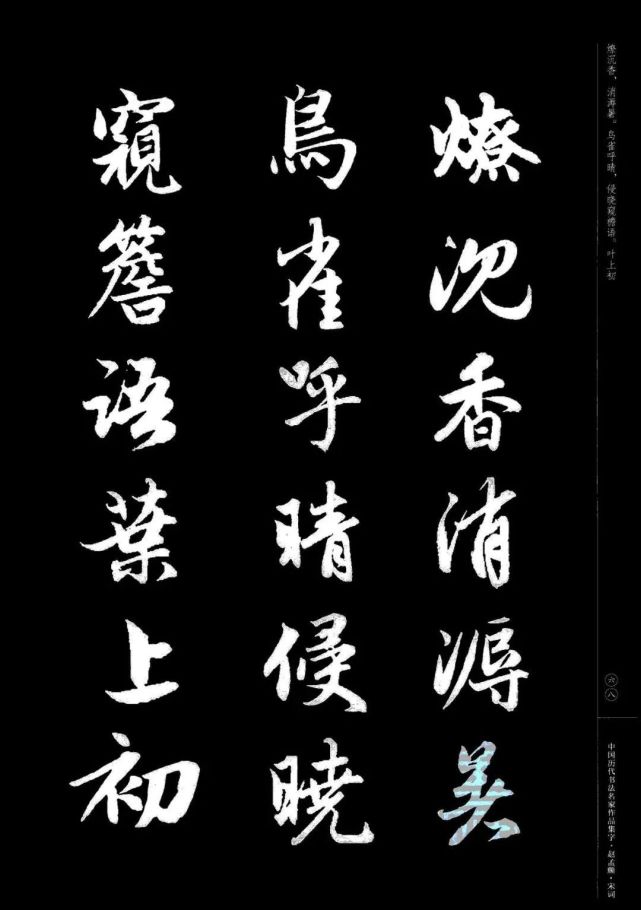 燎沉香、消溽暑。鸟雀呼晴，侵晓窥檐语。叶上初
六八
中国历代书法名家作品集字·赵孟頫·宋词
燎沉香消溽美
鳥雀呼晴侵曉
窺簷語葉上初